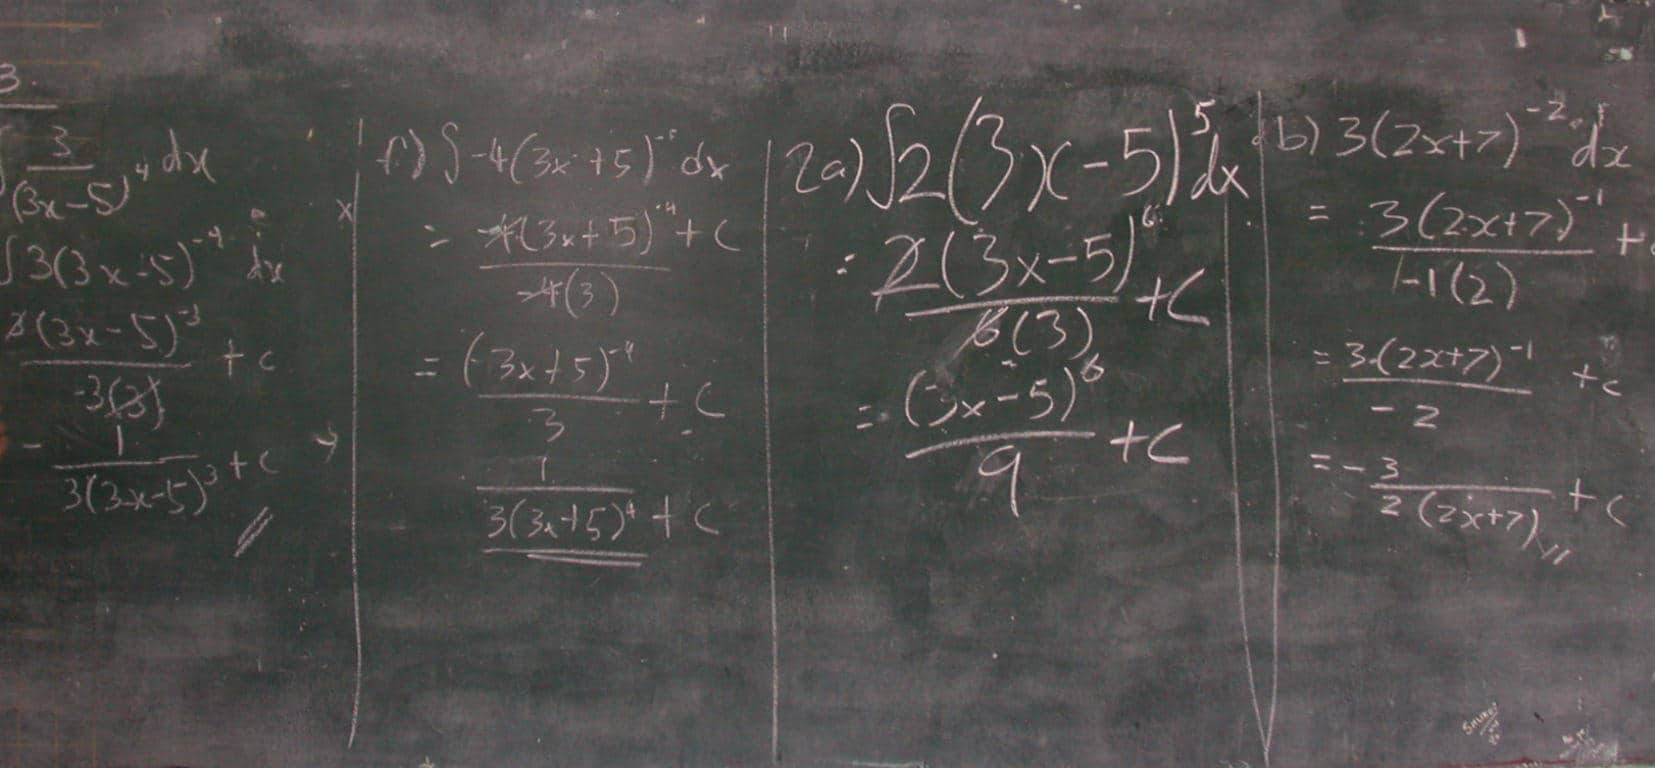 3.
∫ 3/(3x-5)⁴ dx
∫3(3x-5)⁻⁴ dx
3(3x-5)⁻³/-3(3) + c
- 1/3(3x-5)³ + c
f) ∫-4(3x+5)⁻⁵ dx
= -4(3x+5)⁻⁴/-4(3) + c
= (3x+5)⁻⁴/3 + c
1/3(3x+5)⁴ + c
2a) ∫2(3x-5)⁵ dx
= 2(3x-5)⁶/6(3) + c
= (3x-5)⁶/9 + c
b) 3(2x+7)⁻² dx
= 3(2x+7)⁻¹/-1(2) +
= 3(2x+7)⁻¹/-2 + c
= - 3/2(2x+7) + c